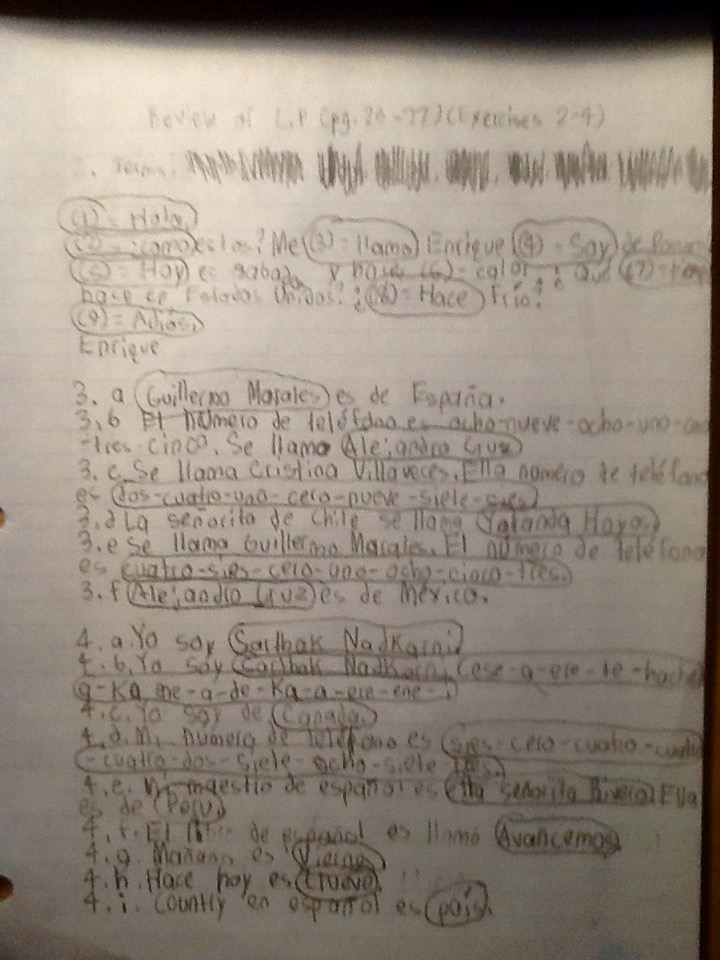 Review of L.P (pg. 26-27) (Exercises 2-4)
2.
(1) = Hola,
(2) = ¿cómo estas? Me (3) = llamo Enrique (4) = Soy de Pana
(5) = Hoy es sabado y hace (6) = calor. ¿ Qué (7) =
hace en Estados Unidos? ¿ (8) = Hace Frío?
(9) = Adiós,
Enrique
3. a Guillermo Morales es de España.
3. b El número de teléfono es ocho-nueve-ocho-uno-
-tres-cinco. Se llama Alejandro Cruz
3. c. Se llama Cristina Villaveces. Ella número te teléfono
es dos-cuatro-uno-cero-nueve-siete-sies
3. d La señorita de Chile se llama Yolanda Hoyos.
3. e Se llama Guillermo Morales. El número de teléfono
es cuatro-sies-cero-uno-ocho-cinco-tres.
3. f Alejandro Cruz es de México.
4. a. Yo soy Sarthak Nadkarni
4. b. Yo soy Sarthak Nadkarni (ese-a-ere-te-hache
a-ka ene-a-de-ka-a-ere-ene-i
4. c. Yo soy de Canada.
4. d. Mi número de teléfono es sies-cero-cuatro-
-cuatro-dos-siete-ocho-siete tres.
4. e. Mi maestro de español es ella señorita Rivera. Ella
es de Peru.
4. f. El libro de español es llamo Avancemos.
4. g. Mañana es Vierne
4. h. Hace hoy es llueve.
4. i. Country en español es país.